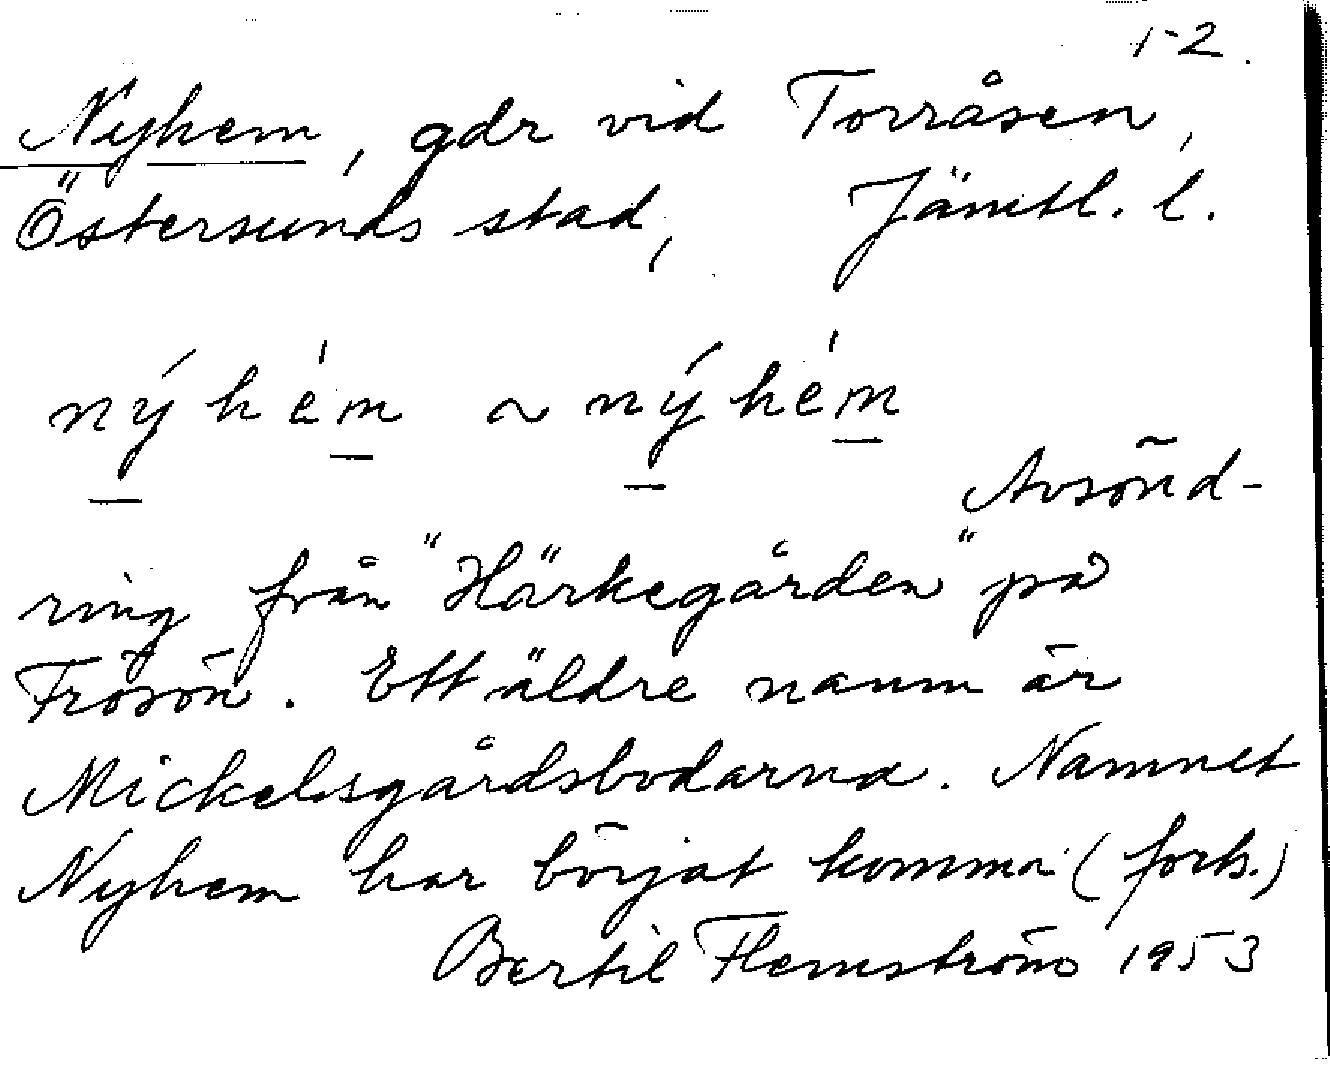 1-2.
Nyhem, gdr vid Torråsen,
Östersunds stad, Jämtl. l.
ný hém ~ ný hém
Avsönd-
ring från "Härkegården" på
Frösön. Ett äldre namn är
Mickelsgårdsbodarna. Namnet
Nyhem har börjat komma (forts.)
Bertil Flemström 1953